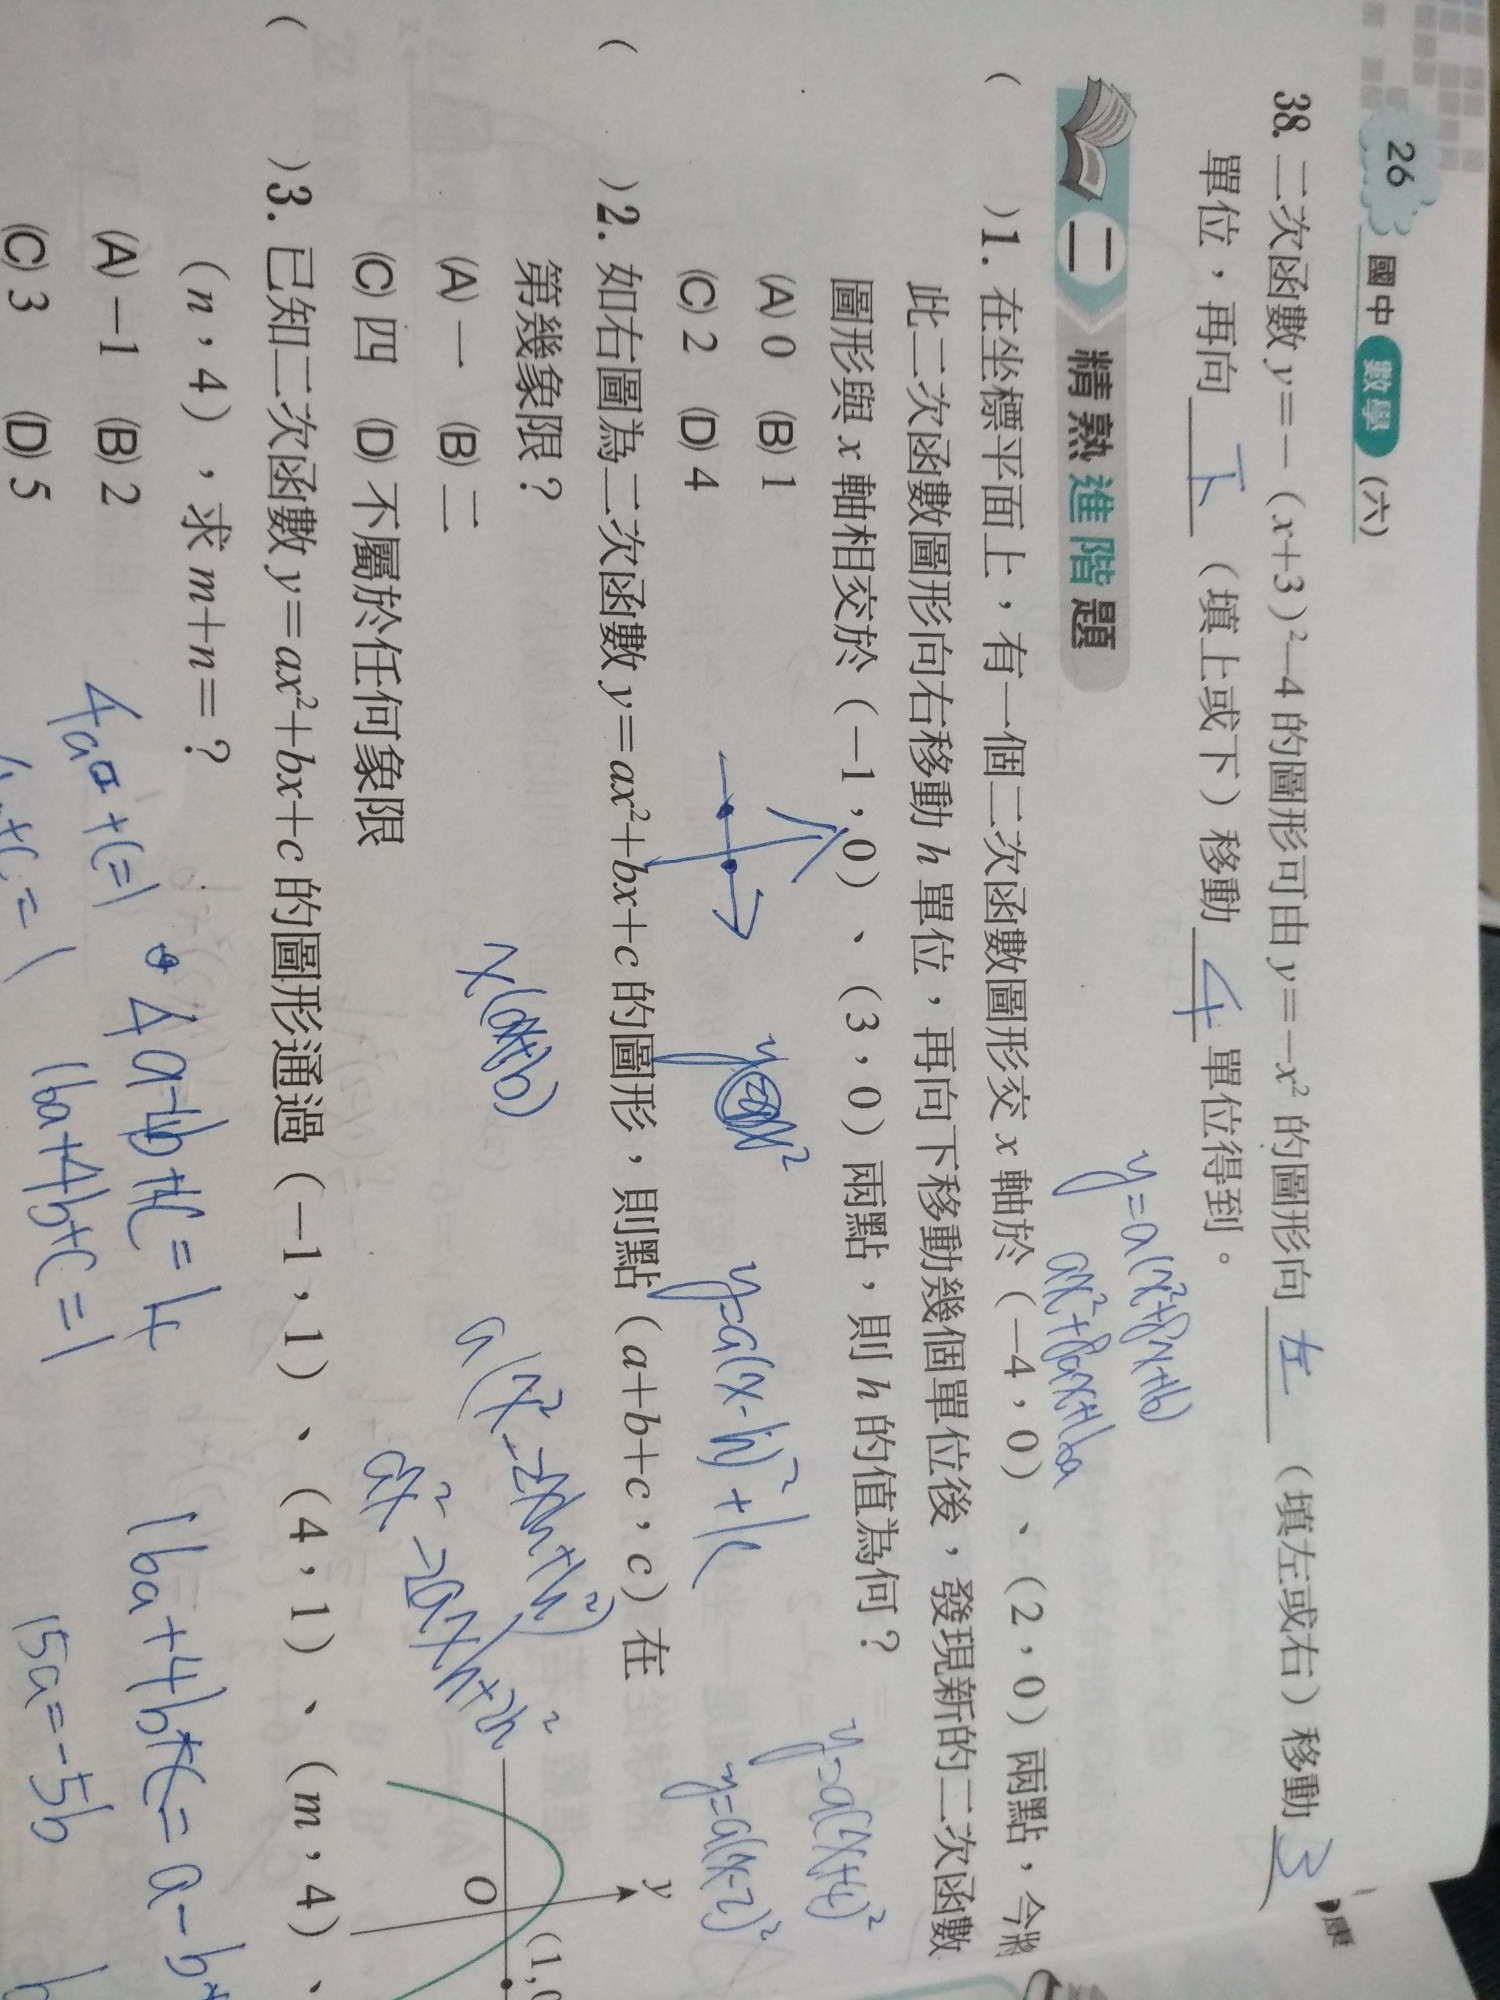 26 國中 數學 (六)
38. 二次函數 y=-(x+3)²-4 的圖形可由 y=-x² 的圖形向 左 (填左或右) 移動 3
單位,再向 下 (填上或下) 移動 4 單位得到。
二 精熟進階題
y=a(x²+8x+16)
ax²+8ax+16a
( )1. 在坐標平面上,有一個二次函數圖形交 x 軸於 (-4,0)、(2,0) 兩點,今將
此二次函數圖形向右移動 h 單位,再向下移動幾個單位後,發現新的二次函數
圖形與 x 軸相交於 (-1,0)、(3,0) 兩點,則 h 的值為何?
(A) 0 (B) 1
(C) 2 (D) 4
y=a(x-h)²+k
y=a(x+4)²
y=a(x-2)²
( )2. 如右圖為二次函數 y=ax²+bx+c 的圖形,則點 (a+b+c,c) 在
第幾象限?
(A) 一 (B) 二
(C) 四 (D) 不屬於任何象限
y
O
(1,
x(a+b)
a(x²-2xh+h²)
ax²-2axh+2h²
( )3. 已知二次函數 y=ax²+bx+c 的圖形通過 (-1,1)、(4,1)、(m,4)、
(n,4),求 m+n=?
(A) -1 (B) 2
(C) 3 (D) 5
16a+4b+c=a-b+
16a+4b+c=1
15a=-5b